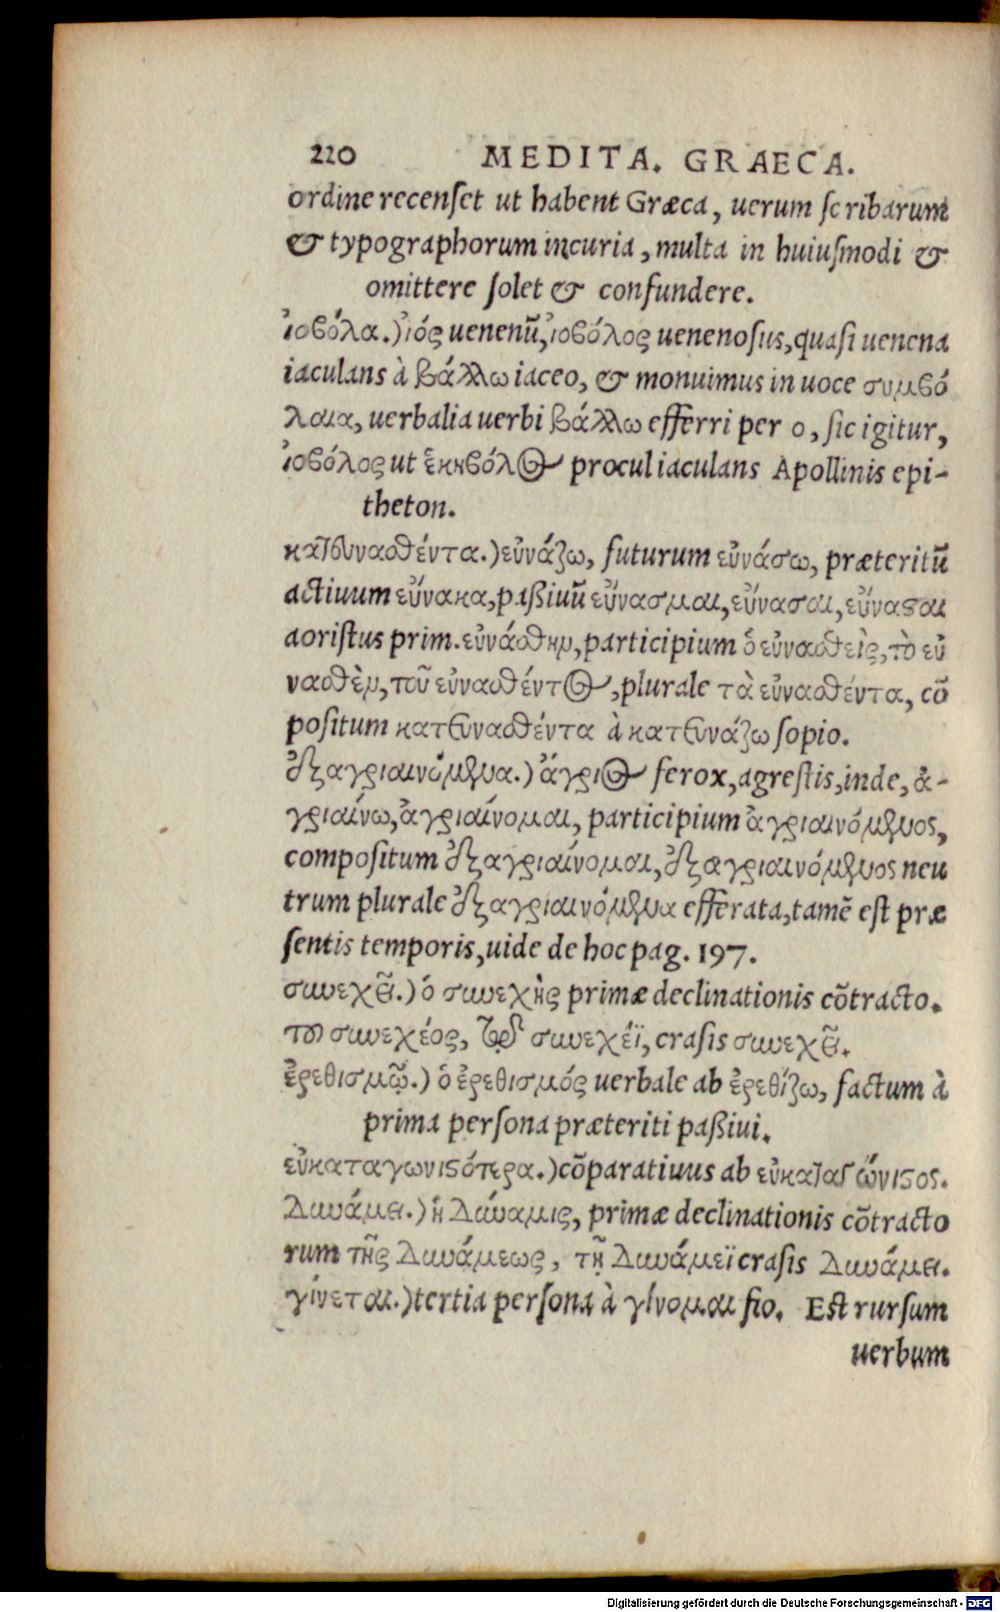 220 MEDITA. GRAECA.
ordine recenset ut habent Græca, uerum scribarum
& typographorum incuria, multa in huiusmodi &
omittere solet & confundere.
ἰοβόλα.) ἰός uenenũ, ἰοβόλος uenenosus, quasi uenena
iaculans à βάλλω iaceo, & monuimus in uoce συμβό
λαια, uerbalia uerbi βάλλω efferri per o, sic igitur,
ἰοβόλος ut ἑκηβόλος procul iaculans Apollinis epi-
theton.
κατευνασθέντα.) εὐνάζω, futurum εὐνάσω, præteritũ
actiuum εὔνακα, paßiuũ εὔνασμαι, εὔνασαι, εὔνασαι
aoristus prim. εὐνάσθην, participium ὁ εὐνασθεὶς, τὸ εὐ
νασθὲν, τοῦ εὐνασθέντος, plurale τὰ εὐνασθέντα, cõ
positum κατευνασθέντα à κατευνάζω sopio.
ἐξαγριαινόμενα.) ἄγριος ferox, agrestis, inde, ἀ-
γριαίνω, ἀγριαίνομαι, participium ἀγριαινόμενος,
compositum ἐξαγριαίνομαι, ἐξαγριαινόμενος neu
trum plurale ἐξαγριαινόμενα efferata, tamẽ est præ
sentis temporis, uide de hoc pag. 197.
συνεχεῖ.) ὁ συνεχὴς primæ declinationis cõtracto.
του συνεχέος, τῷ συνεχέϊ, crasis συνεχεῖ.
ἐρεθισμῷ.) ὁ ἐρεθισμός uerbale ab ἐρεθίζω, factum à
prima persona præteriti paßiui.
εὐκαταγωνιστότερα.) cõparatiuus ab εὐκαταγώνιστος.
Δυνάμει.) ἡ Δύναμις, primæ declinationis cõtracto
rum τῆς Δυνάμεως, τῇ Δυνάμεϊ crasis Δυνάμει.
γίνεται.) tertia persona à γίνομαι fio. Est rursum
uerbum
Digitalisierung gefördert durch die Deutsche Forschungsgemeinschaft - DFG